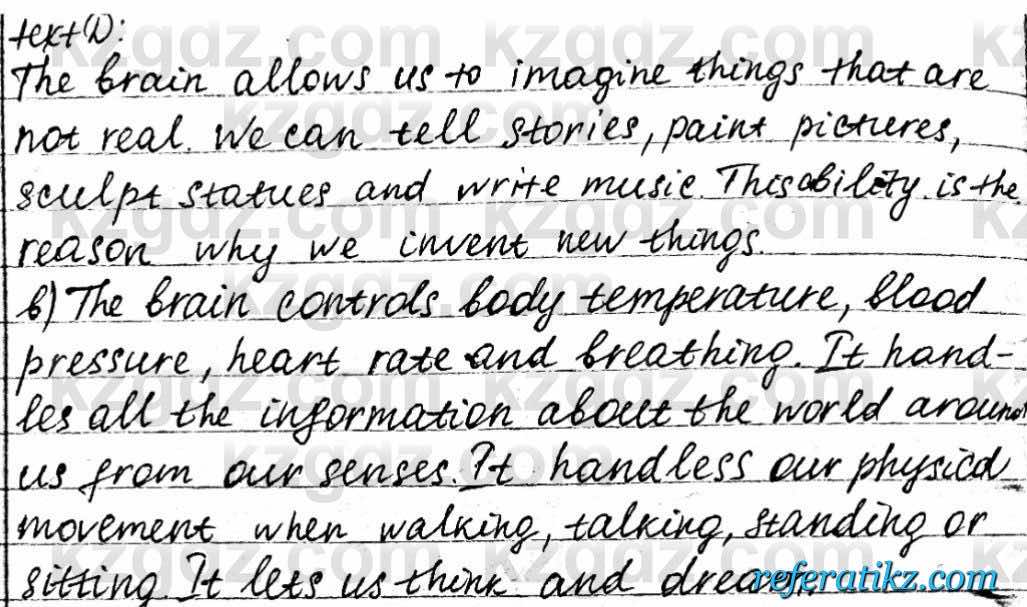 text D:
The brain allows us to imagine things that are
not real. We can tell stories, paint pictures,
sculpt statues and write music. This ability is the
reason why we invent new things.
b) The brain controls body temperature, blood
pressure, heart rate and breathing. It hand-
les all the information about the world around
us from our senses. It handless our physical
movement when walking, talking, standing or
sitting. It lets us think and
referatikz.com